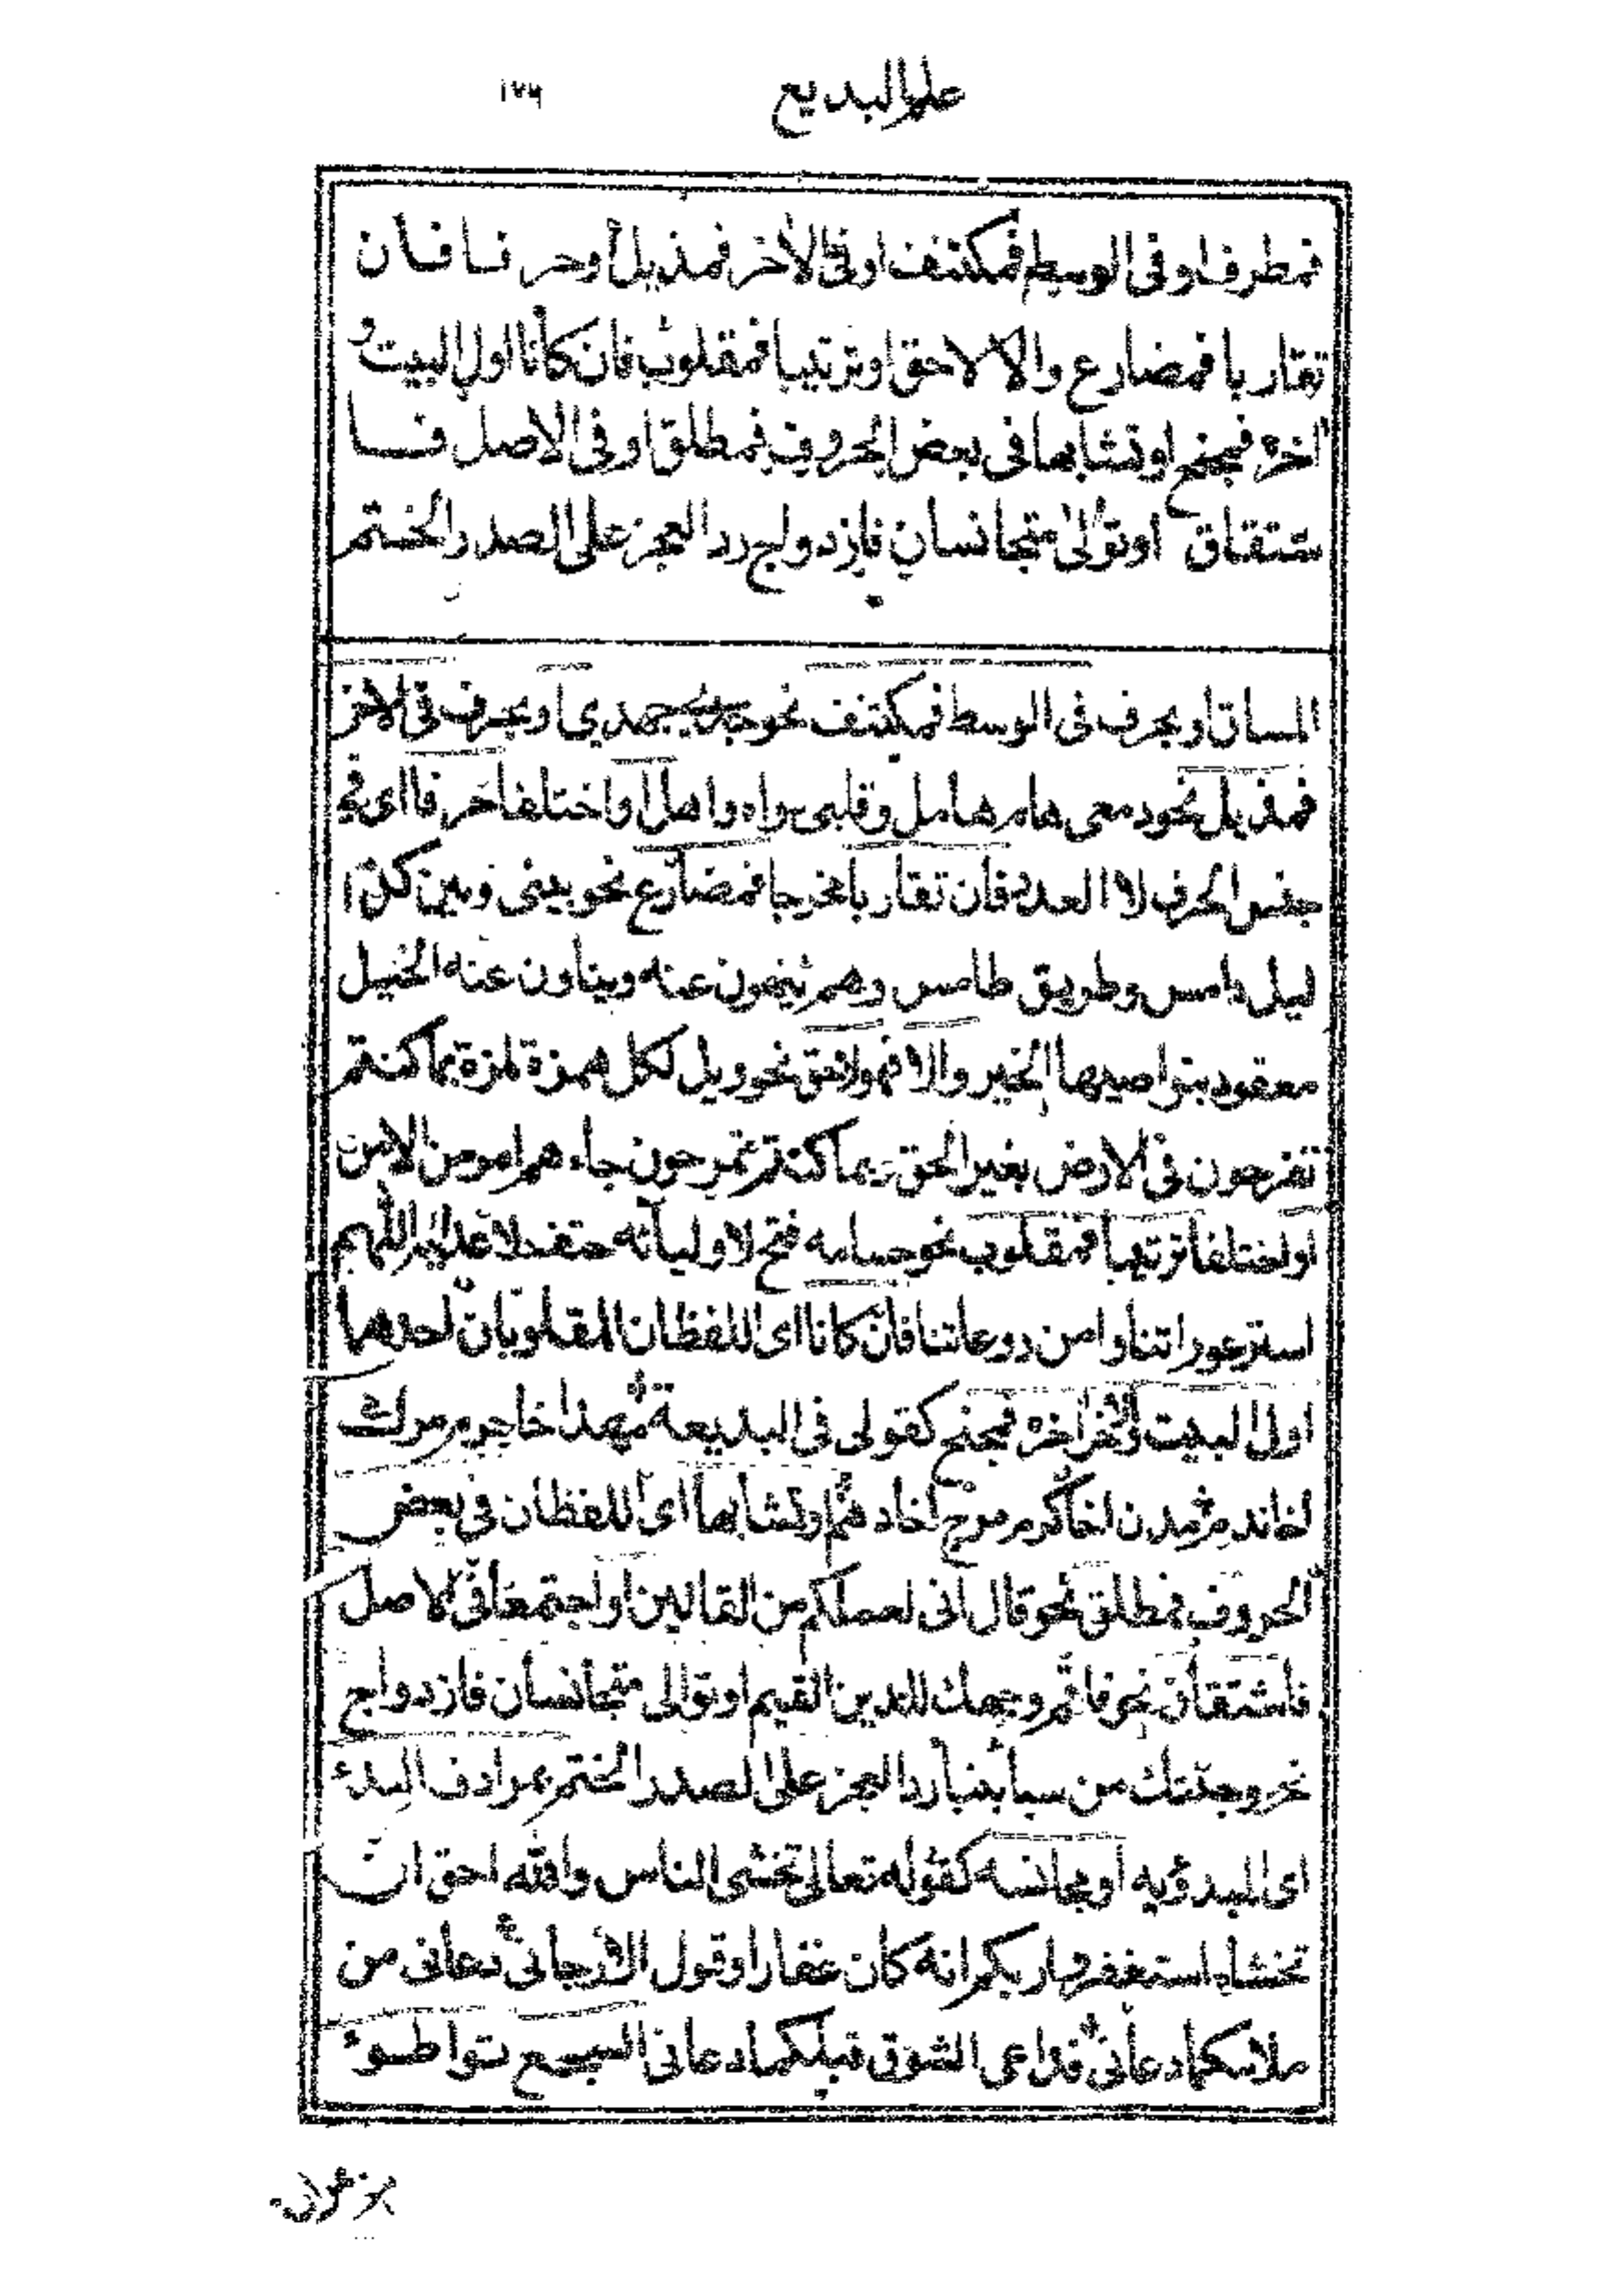 علم البديع ١٧٦
فمطرف او فى الوسط فمكتنف او فى الاخر فمذيل او حرفا فان
تقاربا فمضارع والا لاحق او ترتيبا فمقلوب فان كانا اول البيت و
اخره فمجنح او تشابها فى بعض الحروف فمطلق او فى الاصل فا
شتقاق او توالى متجانسان فازدواج رد العجز على الصدر الختم
المساق او بحرف فى الوسط فمكتنف نحو جدى جهدى او بحرف فى الاخر
فمذيل نحو دمعى هام هامل وقلبى واه واهل او اختلفا حرفا اى فى
جنس الحرف لا العدد فان تقاربا مخرجا فمضارع نحو بينى وبين كنى
ليل دامس وطريق طامس وهم ينهون عنه وينأون عنه الخيل
معقود بنواصيها الخير والا فهو لاحق نحو ويل لكل همزة لمزة بما كنتم
تفرحون فى الارض بغير الحق وبما كنتم تمرحون جاءهم امر من الامن
او اختلفا ترتيبا فمقلوب نحو حسامه فتح لاوليائه حتف لاعدائه اللهم
استر عوراتنا وامن روعاتنا فان كانا اى اللفظان المقلوبان احدهما
اول البيت والاخر اخره فمجنح كقولى فى البديعة
او تشابها اى اللفظان فى بعض
الحروف فمطلق نحو قال انى لعملكم من القالين او اجتمعا فى الاصل
فاشتقاق نحو فاقم وجهك للدين القيم او توالى متجانسان فازدواج
نحو وجئتك من سبأ بنبأ رد العجز على الصدر الختم بمرادف البدء
اى المبدؤ به او مجانسه كقوله تعالى تخشى الناس والله احق ان
تخشاه استغفروا ربكم انه كان غفارا وقول الارجانى دعانى من
ملامكما دعانى فداعى الشوق قبلكما دعانى السجع تواطؤ